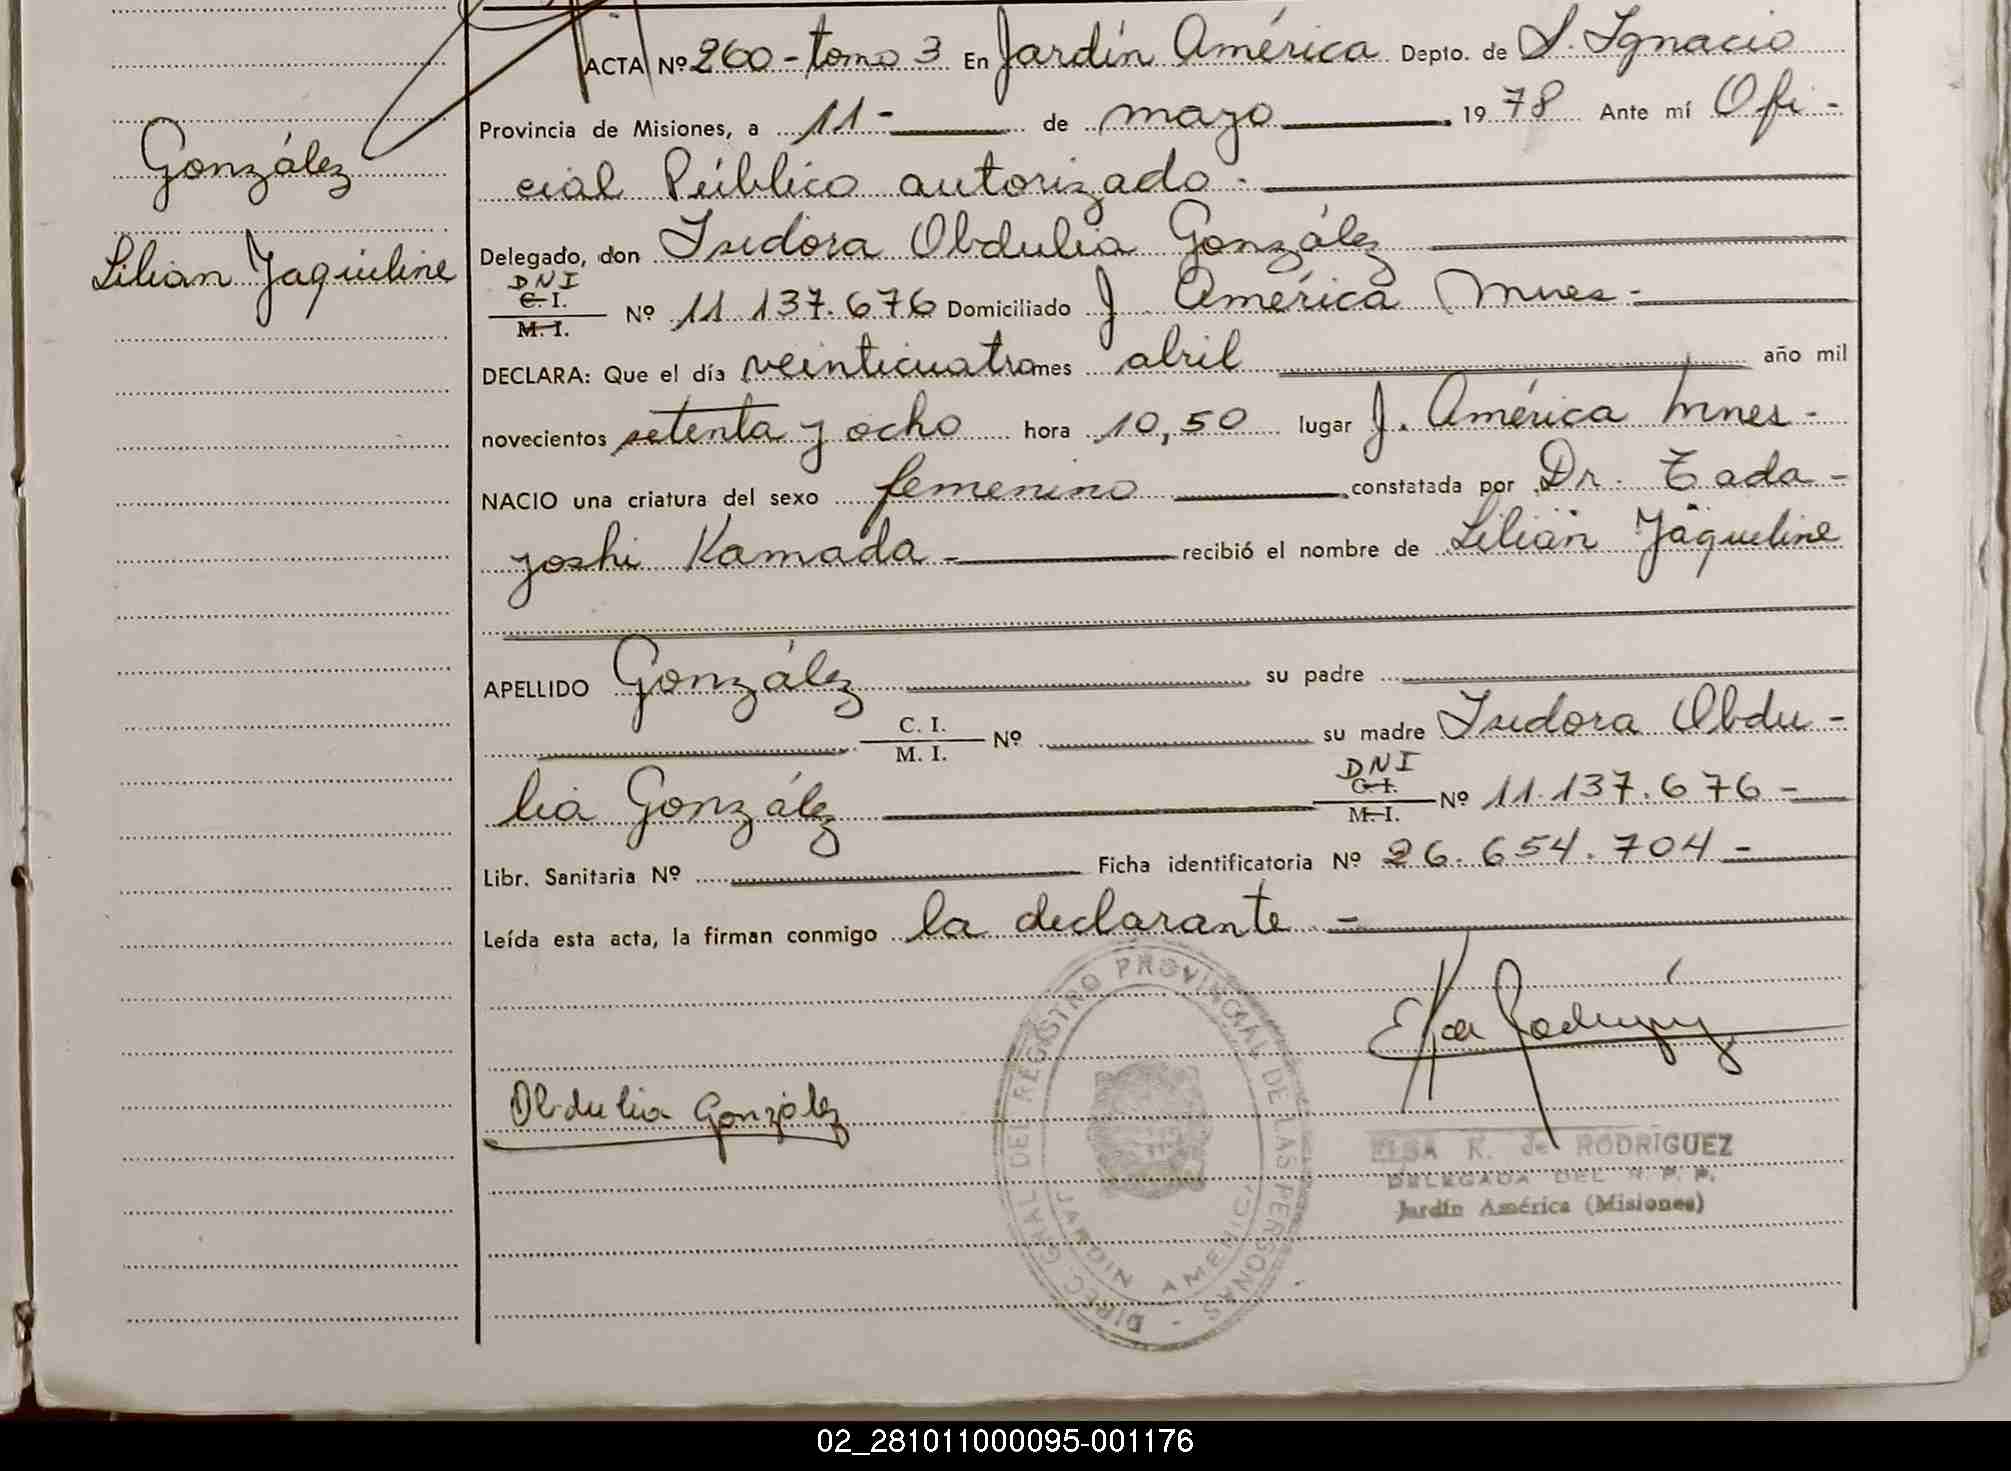 ACTA Nº 260 - tomo 3 En Jardín América Depto. de S. Ignacio
Provincia de Misiones, a 11- de mayo 1978 Ante mí Ofi-
cial Público autorizado -
González
Delegado, don Isidora Obdulia González
Lilian Jaqueline
DNI
C. I.
M. I.
Nº 11.137.676 Domiciliado J. América Mnes -
DECLARA: Que el día veinticuatro mes abril año mil
novecientos setenta y ocho hora 10,50 lugar J. América Mnes -
NACIO una criatura del sexo femenino constatada por Dr. Tada-
yoshi Kamada - recibió el nombre de Lilian Jaqueline
APELLIDO González su padre
C. I.
M. I.
Nº su madre Isidora Obdu-
lia González
DNI
C. I.
M. I.
Nº 11.137.676 -
Libr. Sanitaria Nº Ficha identificatoria Nº 26.654.704 -
Leída esta acta, la firman conmigo la declarante -
Obdulia González
Elsa Rodríguez
DIREC. GRAL. DEL REGISTRO PROVINCIAL DE LAS PERSONAS -
JARDIN AMERICA
ELSA K. de RODRIGUEZ
DELEGADA DEL R. P. P.
Jardín América (Misiones)
02_281011000095-001176